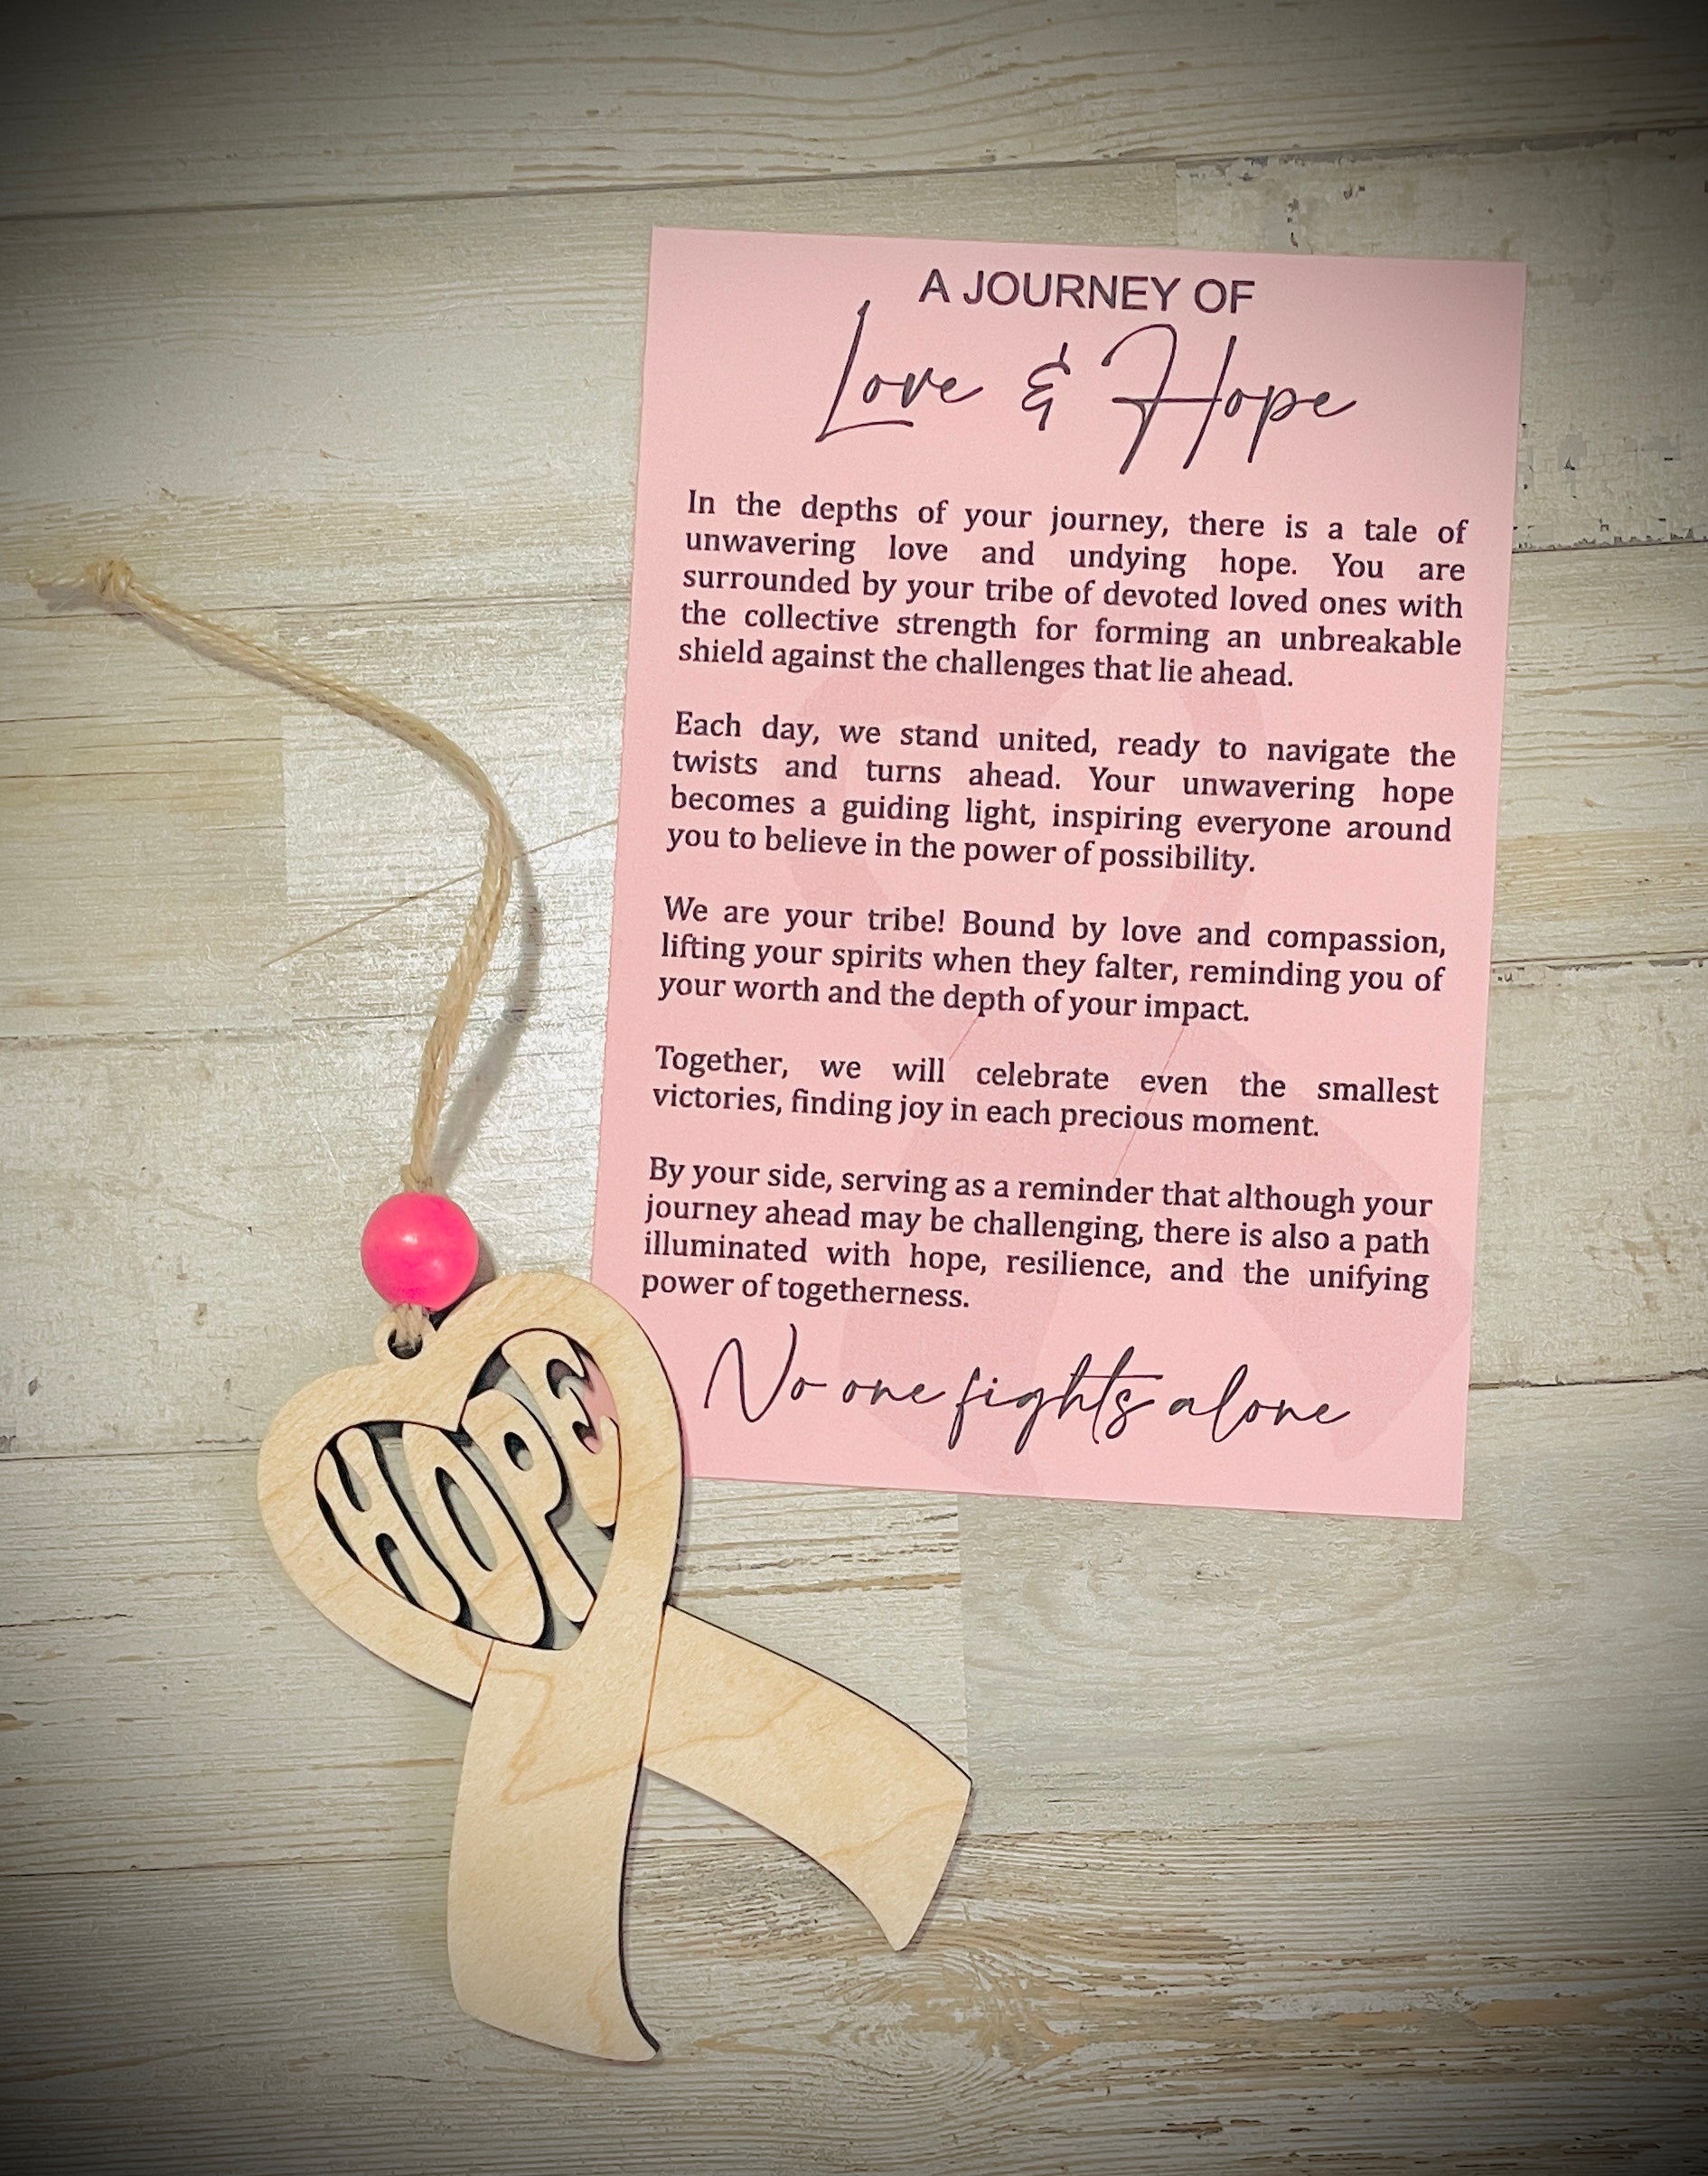 A JOURNEY OF
Love & Hope
In the depths of your journey, there is a tale of
unwavering love and undying hope. You are
surrounded by your tribe of devoted loved ones with
the collective strength for forming an unbreakable
shield against the challenges that lie ahead.
Each day, we stand united, ready to navigate the
twists and turns ahead. Your unwavering hope
becomes a guiding light, inspiring everyone around
you to believe in the power of possibility.
We are your tribe! Bound by love and compassion,
lifting your spirits when they falter, reminding you of
your worth and the depth of your impact.
Together, we will celebrate even the smallest
victories, finding joy in each precious moment.
By your side, serving as a reminder that although your
journey ahead may be challenging, there is also a path
illuminated with hope, resilience, and the unifying
power of togetherness.
No one fights alone
HOPE